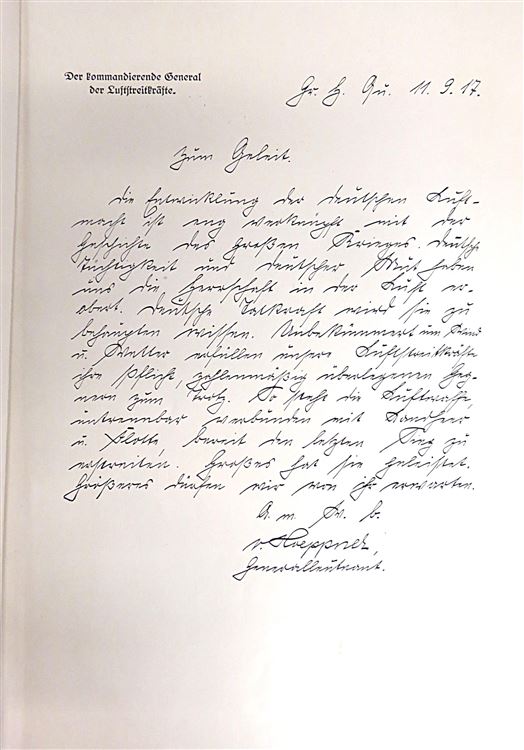 Der kommandierende General
der Luftstreitkräfte.
Gr. H. Qu. 11. 9. 17.
Zum Geleit.
Die Entwicklung der deutschen Luft-
macht ist eng verknüpft mit der
Geschichte des Großen Krieges. Deutsche
Tüchtigkeit und deutscher Mut haben
uns die Herrschaft in der Luft er-
obert. Deutsche Tatkraft wird sie zu
behaupten wissen. Unbekümmert um
u. Wetter erfüllen unsere Luftstreitkräfte
ihre Pflicht, zahlenmäßig überlegenen Geg-
nern zum Trotz. So steht die Luftwaffe,
untrennbar verbunden mit Landheer
u. Flotte bereit den letzten Sieg zu
erstreiten. Großes hat sie geleistet.
Größeres dürfen wir von ihr erwarten.
v. Hoeppner,
Generalleutnant.